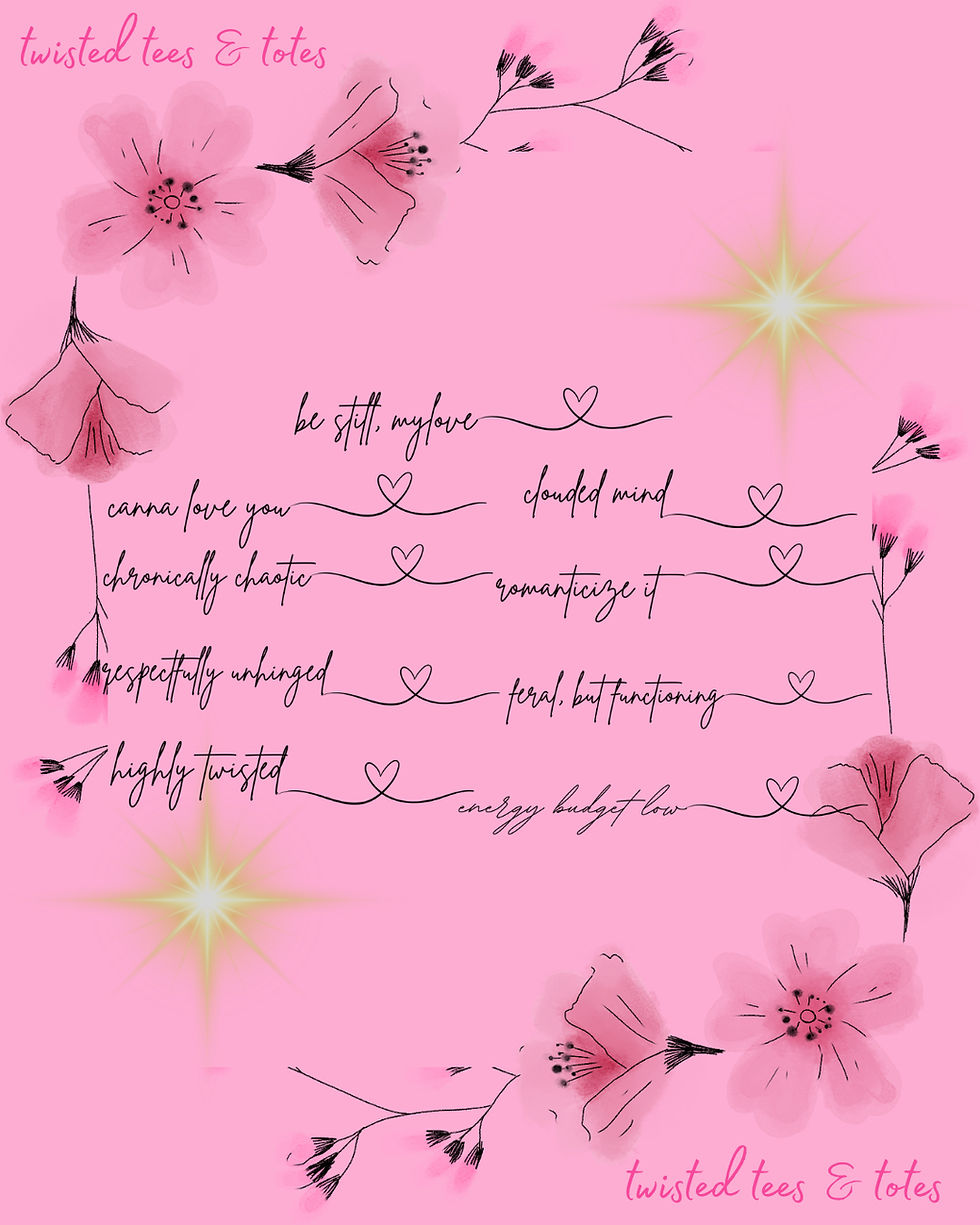 twisted tees & totes
be still, mylove
canna love you
clouded mind
chronically chaotic
romanticize it
respectfully unhinged
feral, but functioning
highly twisted
energy budget low
twisted tees & totes